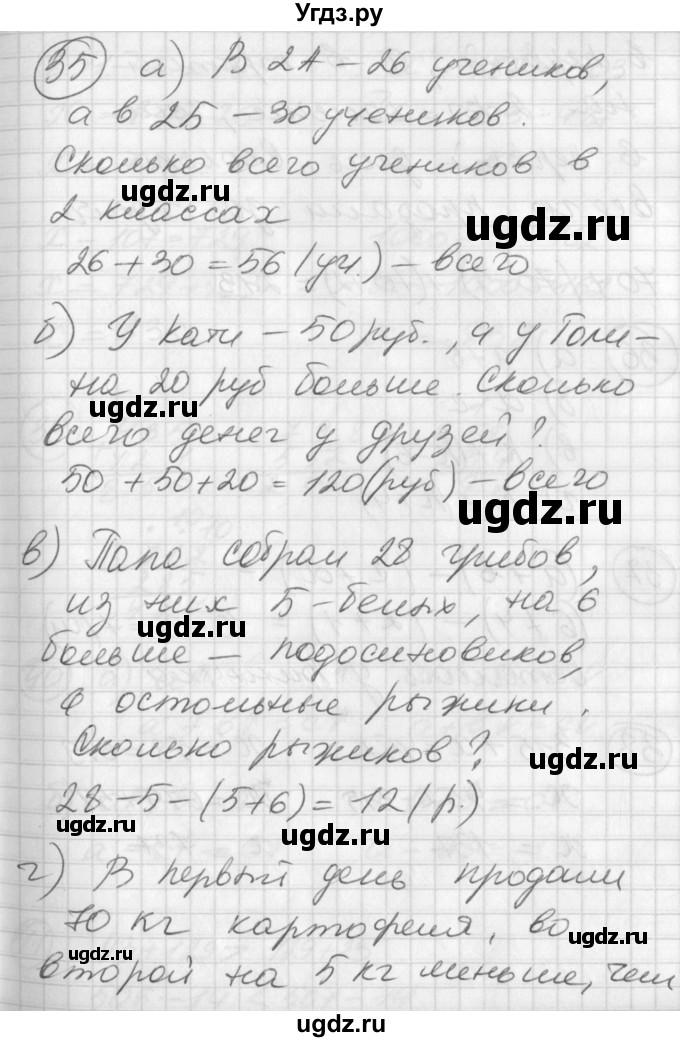 Угдз.ру
35 а) В 2А – 26 учеников,
а в 2Б – 30 учеников.
ugdz.ru
Сколько всего учеников в
ugdz.ru
2 классах
ugdz.ru
26 + 30 = 56 (уч.) – всего
б) У Кати – 50 руб., а у Толи –
на 20 руб больше. Сколько
ugdz.ru
всего денег у друзей?
50 + 50 + 20 = 120 (руб) – всего
ugdz.ru
в) Папа собрал 28 грибов,
из них 5 – белых, на 6
ugdz.ru
больше – подосиновиков,
а остольные рыжики.
Сколько рыжиков?
ugdz.ru
28 – 5 – (5+6) = 12 (р.)
ugdz.ru
г) В первый день продали
70 кг картофеля, во
ugdz.ru
ugdz.ru
второй на 5 кг меньше, чем
ugdz.ru